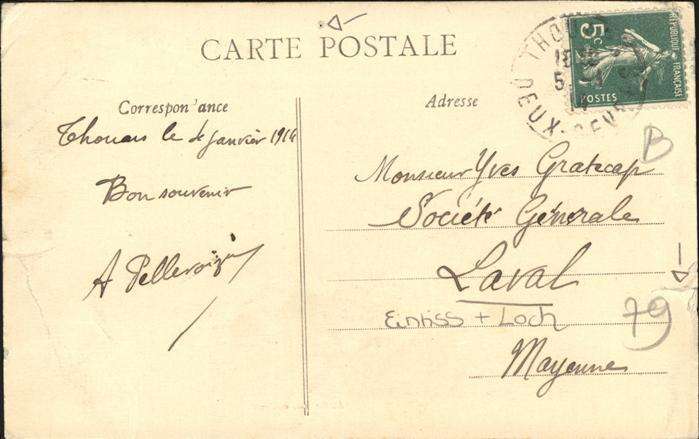 CARTE POSTALE
Correspon'ance
Thouars le janvier 1914
Bon souvenir
A Pelleroizin
Adresse
Monsieur Yves Gratecap
Société Générale
Laval
Einriss + Loch
Mayenne
B
79
REPUBLIQUE FRANÇAISE
5c
POSTES
THO
DEUX-SEVRES